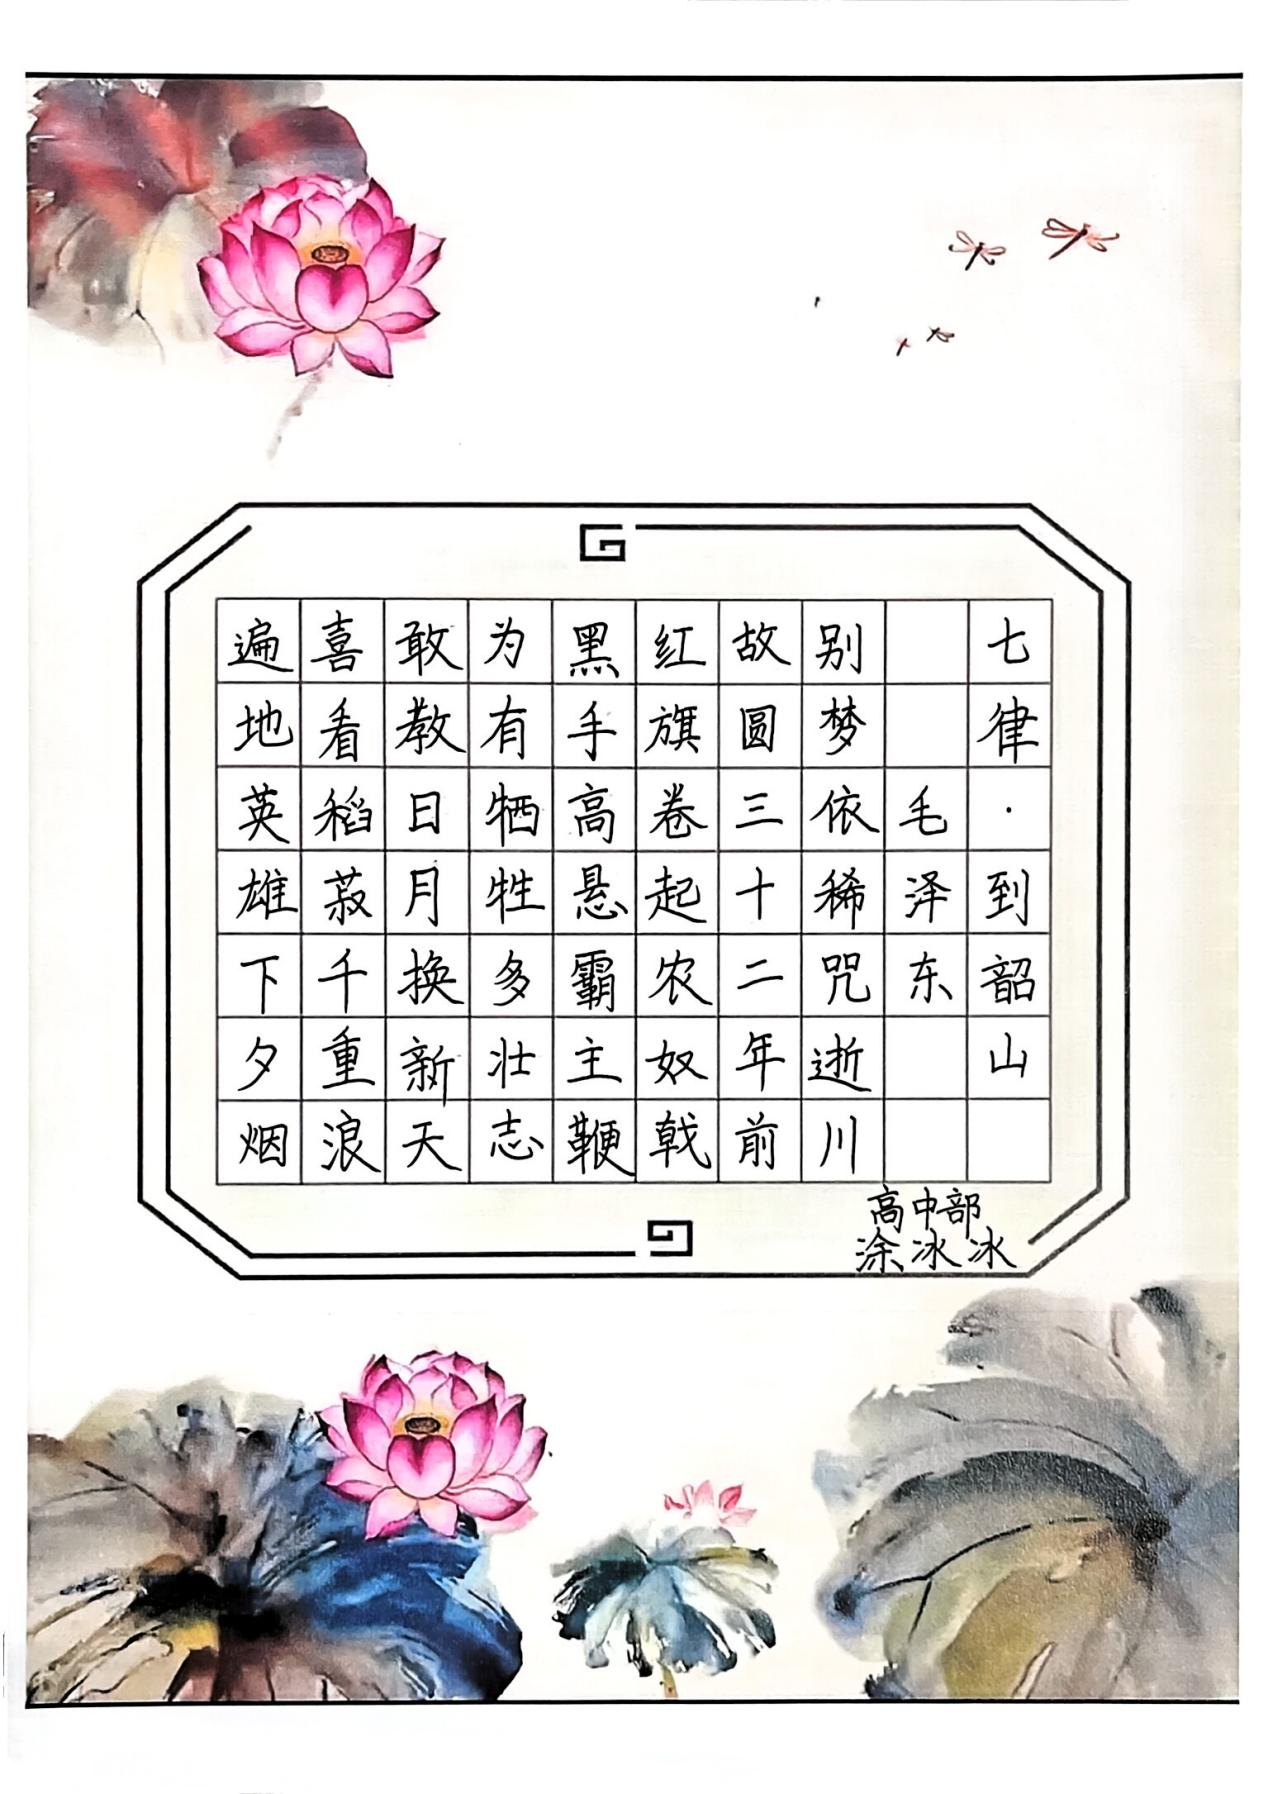 七律·到韶山
毛泽东
别梦依稀咒逝川
故圆三十二年前
红旗卷起农奴戟
黑手高悬霸主鞭
为有牺牲多壮志
敢教日月换新天
喜看稻菽千重浪
遍地英雄下夕烟
高中部
涂冰冰